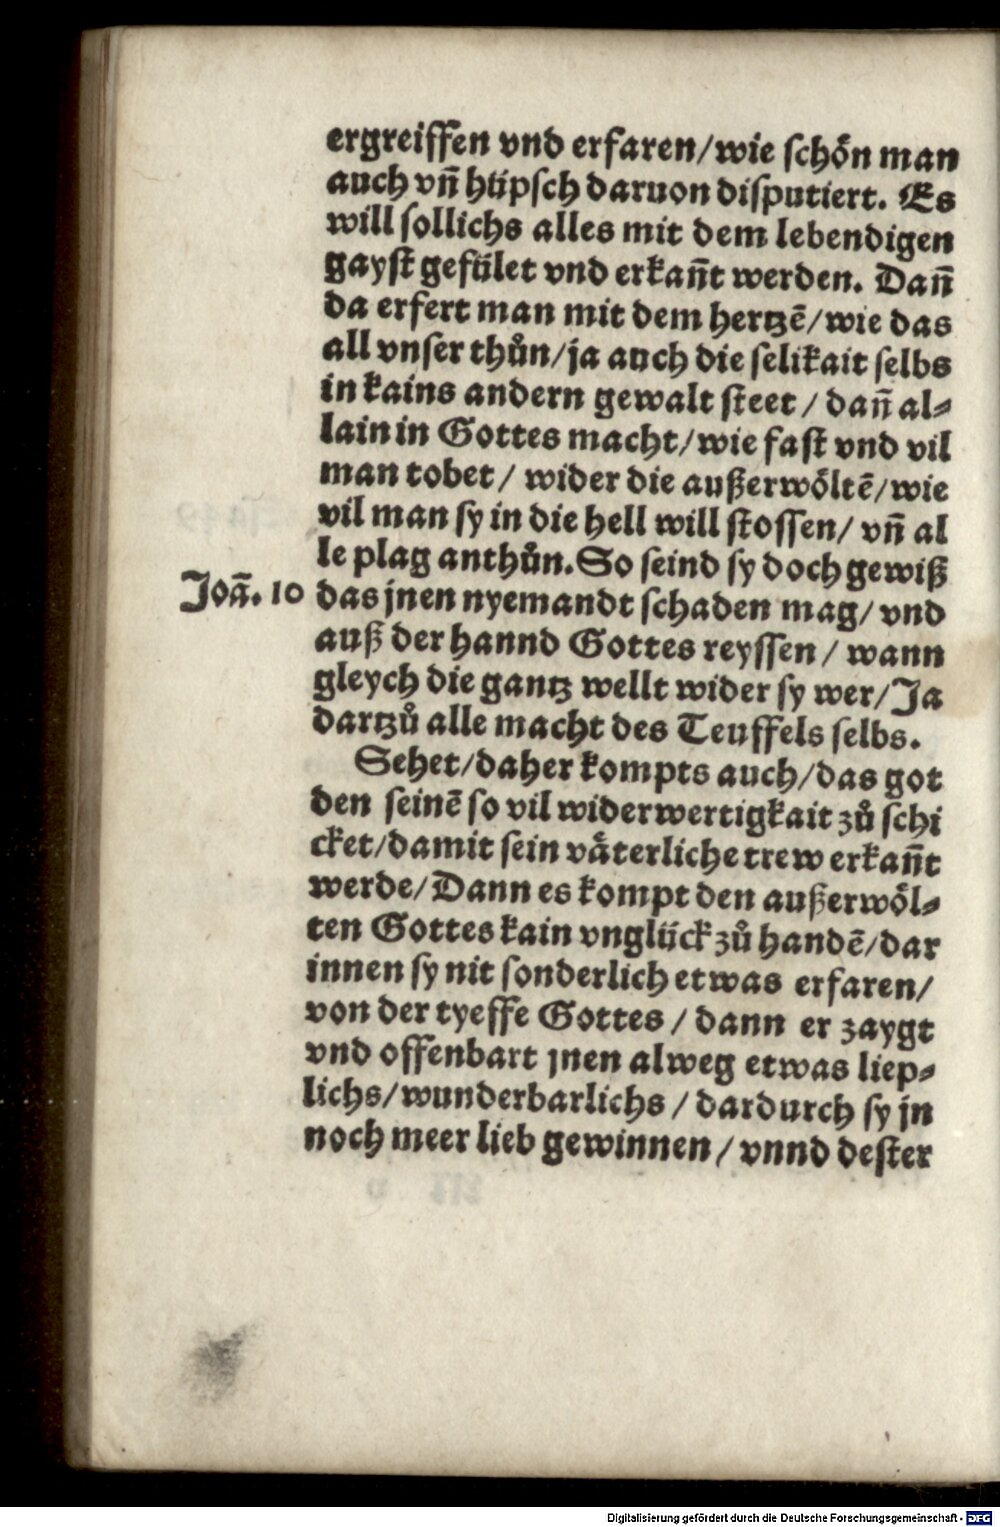 ergreiffen vnd erfaren/wie schön man
auch vñ hüpsch daruon disputiert. Es
will sollichs alles mit dem lebendigen
gayst gefület vnd erkañt werden. Dañ
da erfert man mit dem hertzē/wie das
all vnser thůn/ja auch die selikait selbs
in kains andern gewalt steet / dañ al⸗
lain in Gottes macht/wie fast vnd vil
man tobet / wider die außerwöltē/wie
vil man sy in die hell will stossen/ vñ al
le plag anthůn. So seind sy doch gewiß
Joā. 10 das jnen nyemandt schaden mag/ vnd
auß der hannd Gottes reyssen / wann
gleych die gantz wellt wider sy wer/Ja
dartzů alle macht des Teuffels selbs.
Sehet/daher kompts auch/das got
den seinē so vil widerwertigkait zů schi
cket/damit sein väterliche trew erkañt
werde/Dann es kompt den außerwöl⸗
ten Gottes kain vnglück zů handē/dar
innen sy nit sonderlich etwas erfaren/
von der tyeffe Gottes / dann er zaygt
vnd offenbart jnen alweg etwas liep⸗
lichs/wunderbarlichs / dardurch sy jn
noch meer lieb gewinnen / vnnd dester
Digitalisierung gefördert durch die Deutsche Forschungsgemeinschaft - DFG